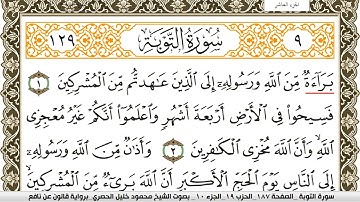 الجزء العاشر
٩ سُورَةُ التَّوْبَةِ ١٢٩
بَرَآءَةٌ مِّنَ اَللَّهِ وَرَسُولِهِۦٓ إِلَى اَلَّذِينَ عَٰهَدتُّم مِّنَ اَلْمُشْرِكِينَ ١
فَسِيحُواْ فِي اِلْأَرْضِ أَرْبَعَةَ أَشْهُرٍ وَاعْلَمُوٓاْ أَنَّكُمْ غَيْرُ مُعْجِزِي
اِللَّهِ وَأَنَّ اَللَّهَ مُخْزِي اِلْكَٰفِرِينَ ٢ وَأَذَٰنٌ مِّنَ اَللَّهِ وَرَسُولِهِۦٓ
إِلَى اَلنَّاسِ يَوْمَ اَلْحَجِّ اِلْأَكْبَرِ أَنَّ اَللَّهَ بَرِيٓءٌ مِّنَ اَلْمُشْرِكِينَ
سورة التوبة _ الصفحة ١٨٧ _ الحزب ١٩ _ الجزء ١٠ _ بصوت الشيخ محمود خليل الحصري _ برواية قالون عن نافع